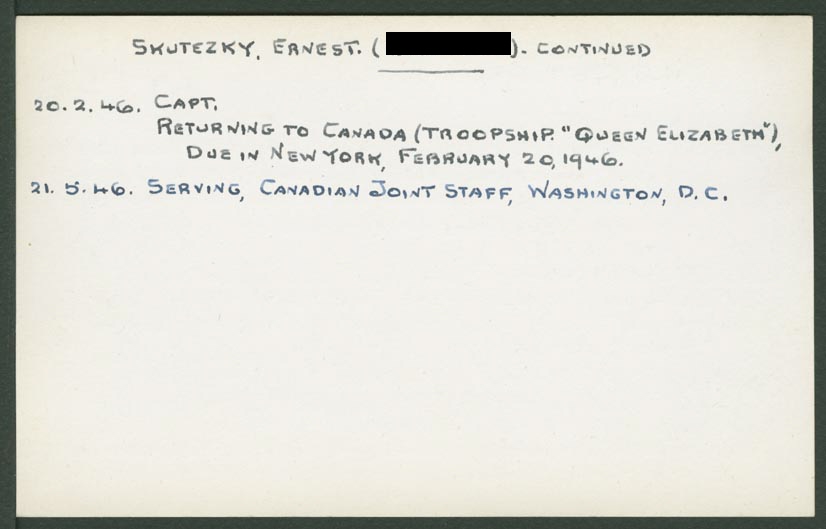 SKUTEZKY, ERNEST. ( ). CONTINUED
20.2.46. CAPT.
RETURNING TO CANADA (TROOPSHIP. "QUEEN ELIZABETH"),
DUE IN NEW YORK, FEBRUARY 20, 1946.
21.5.46. SERVING, CANADIAN JOINT STAFF, WASHINGTON, D.C.